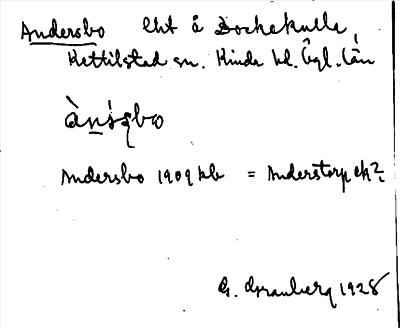 Andersbo lht å Dockekulla,
Kettilstad sn. Kinda hd. Ögl. län
ànṣbo
Andersbo 1909 kb = Anderstorp ek?
G. Granberg 1928